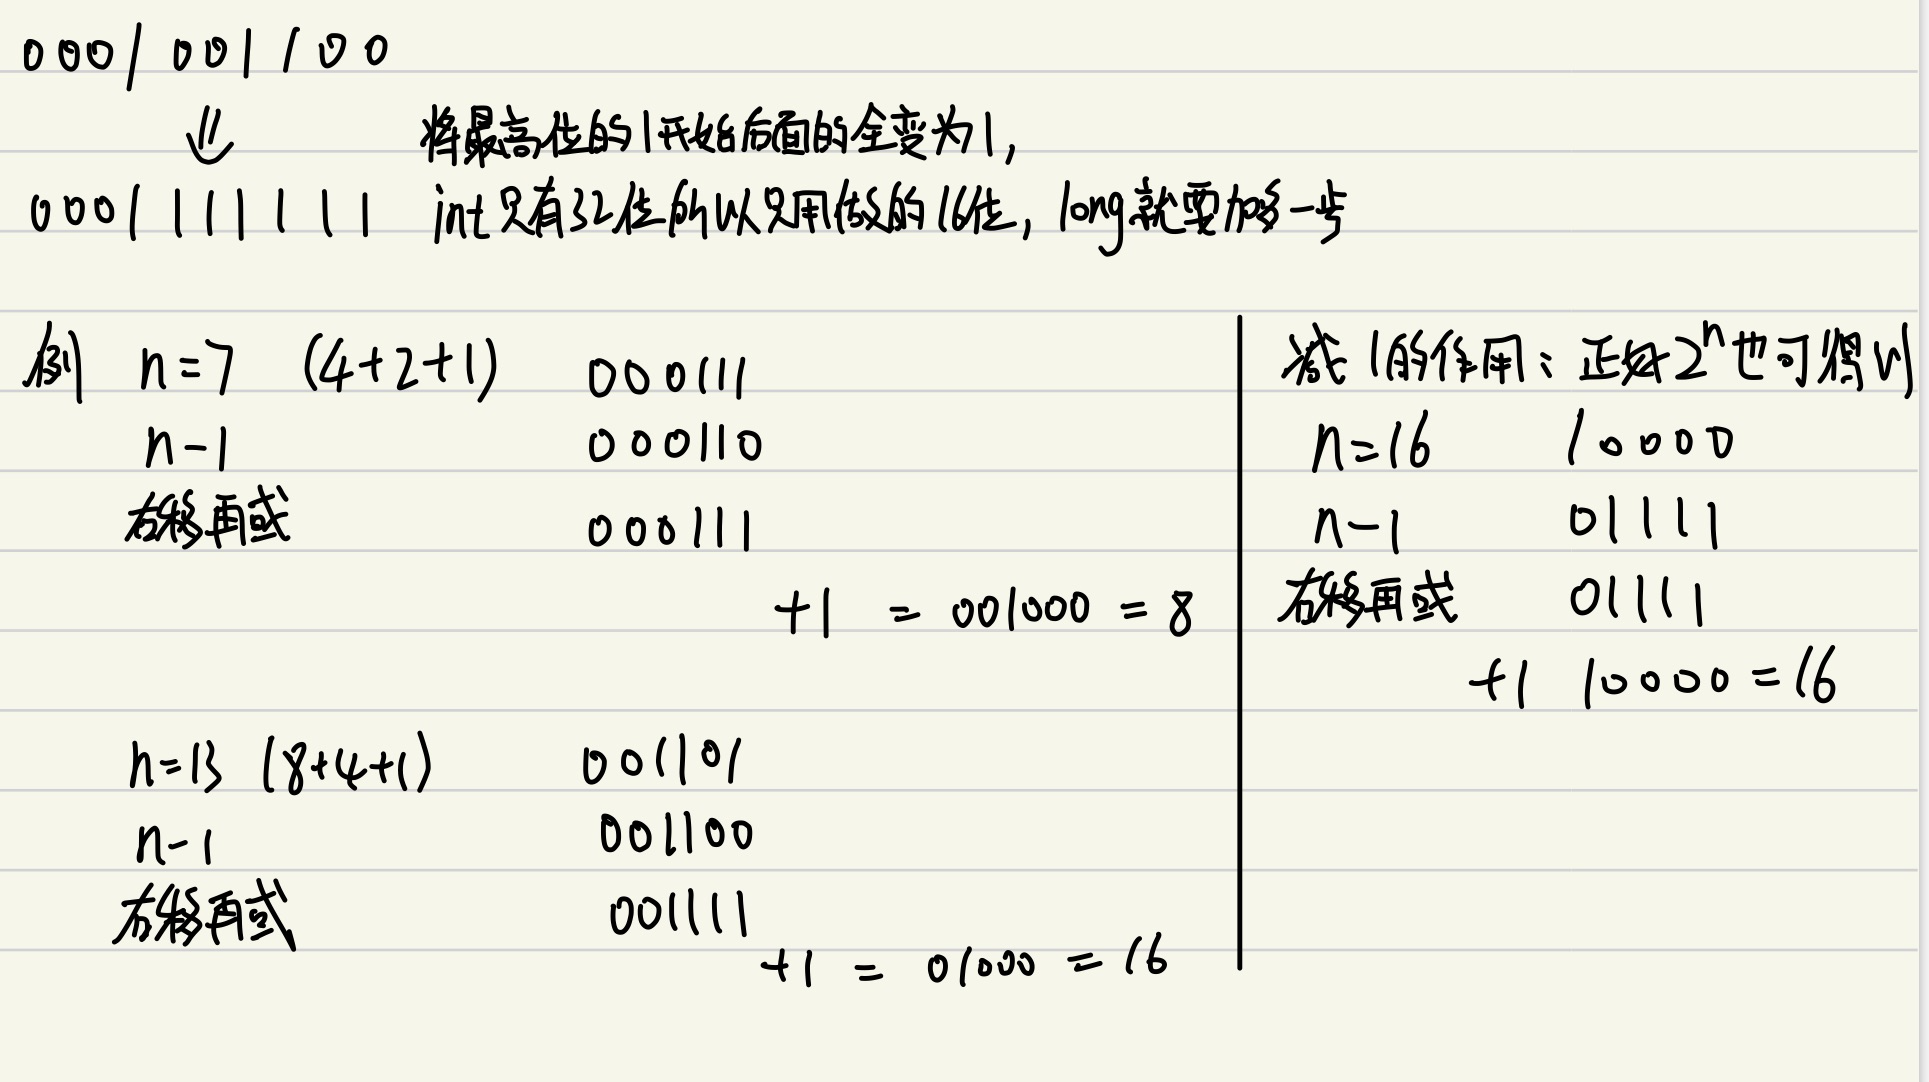 0001001100
⇓ 将最高位的1开始后面的全变为1,
0001111111 int只有32位所以只用做的16位, long就要加多一步
例 n=7 (4+2+1) 000111
n-1 000110
右移再或 000111
+1 = 001000 = 8
n=13 (8+4+1) 001101
n-1 001100
右移再或 001111
+1 = 01000 = 16
减1的作用: 正好2ⁿ也可得以
n=16 10000
n-1 01111
右移再或 01111
+1 10000 = 16